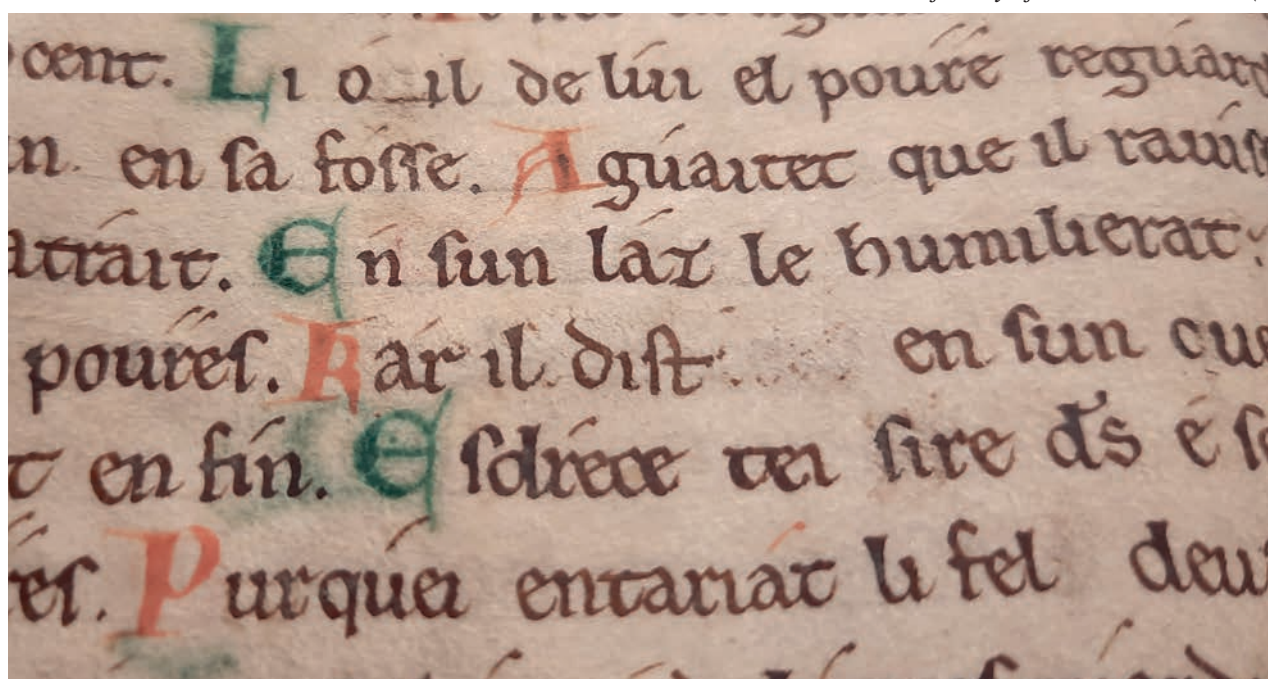 cent. Li o il de lui el poure reguard
n. en sa fosse. Aguaitet que il rauis
atrait. En sun laz le humilierat:
poures. Kar il dist en sun cue
t en fin. Esdrece tei sire ds e se
es. Purquei entariat li fel deu